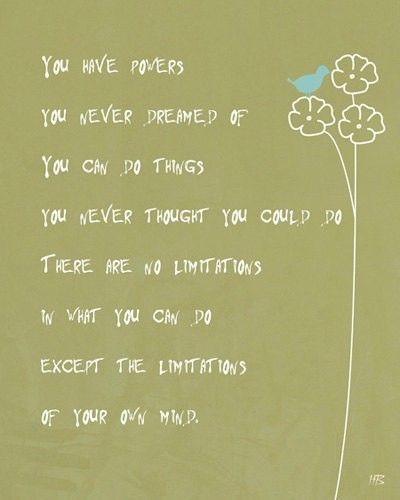 You have powers
you never dreamed of
You can do things
you never thought you could do
There are no limitations
in what you can do
except the limitations
of your own mind.
HB